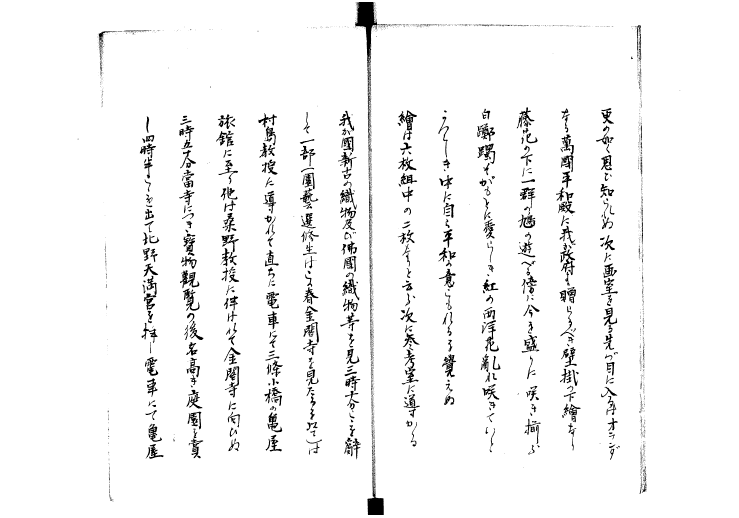 更の如く思ひ知られぬ 次に画室を見る先づ目に入るはオランダ
なる萬国平和殿に我政府より贈らるべき壁掛の下繪なり
藤花の下に一群の鳩の遊べる傍に今を盛りに咲き揃ふ
白躑躅そがもとに愛らしき紅の西洋花亂れ咲きていと
うつくしき中に自ら平和の意こもれる覺えぬ
繪は六枚組中の二枚なりと云ふ次に参考室に導かる
我が國新古の織物及び佛國の織物等を見三時十分こゝを辭
して一部(園藝選修生はこの春金閣寺を見たるを以て)は
村島教授に導かれて直ちに電車にて三條小橋の亀屋
旅館に至り他は桑野教授に伴はれて金閣寺に向ひぬ
三時五十分當寺につき寳物觀覧の後名高き庭園を賞
し四時半こゝを出で北野天満宮を拝し電車にて亀屋